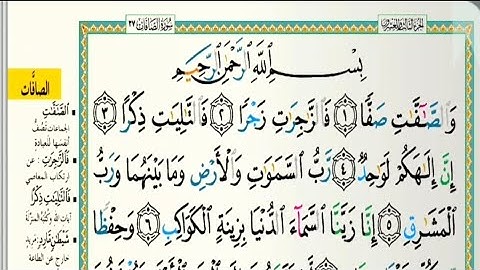 سُورَةُ الصَّافَّاتِ ٣٧
بِسْمِ اللَّهِ الرَّحْمَٰنِ الرَّحِيمِ
وَالصَّٰٓفَّٰتِ صَفًّا ١ فَالزَّٰجِرَٰتِ زَجْرًا ٢ فَالتَّٰلِيَٰتِ ذِكْرًا ٣
إِنَّ إِلَٰهَكُمْ لَوَٰحِدٌ ٤ رَّبُّ السَّمَٰوَٰتِ وَالْأَرْضِ وَمَا بَيْنَهُمَا وَرَبُّ
الْمَشَٰرِقِ ٥ إِنَّا زَيَّنَّا السَّمَآءَ الدُّنْيَا بِزِينَةٍ الْكَوَاكِبِ ٦ وَحِفْظًا
الصافَّات
الصَّٰٓفَّٰتِ
الجماعات تَصُفُّ
أنفسها للعبادة
فَالزَّٰجِرَٰتِ : عن
ارتكاب المعاصي
فَالتَّٰلِيَٰتِ ذِكْرًا
آيات الله وكتبه المنزّلة
شَيْطَٰنٍ مَّارِدٍ :
خارج عن الطاعة